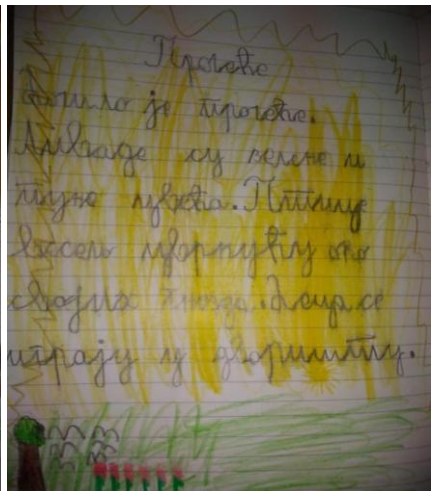 Пролеће
Дошло је пролеће.
Ливаде су зелене и
пуне цвећа. Птице
весело цвркућу око
својих гнезда. Деца се
играју у дворишту.